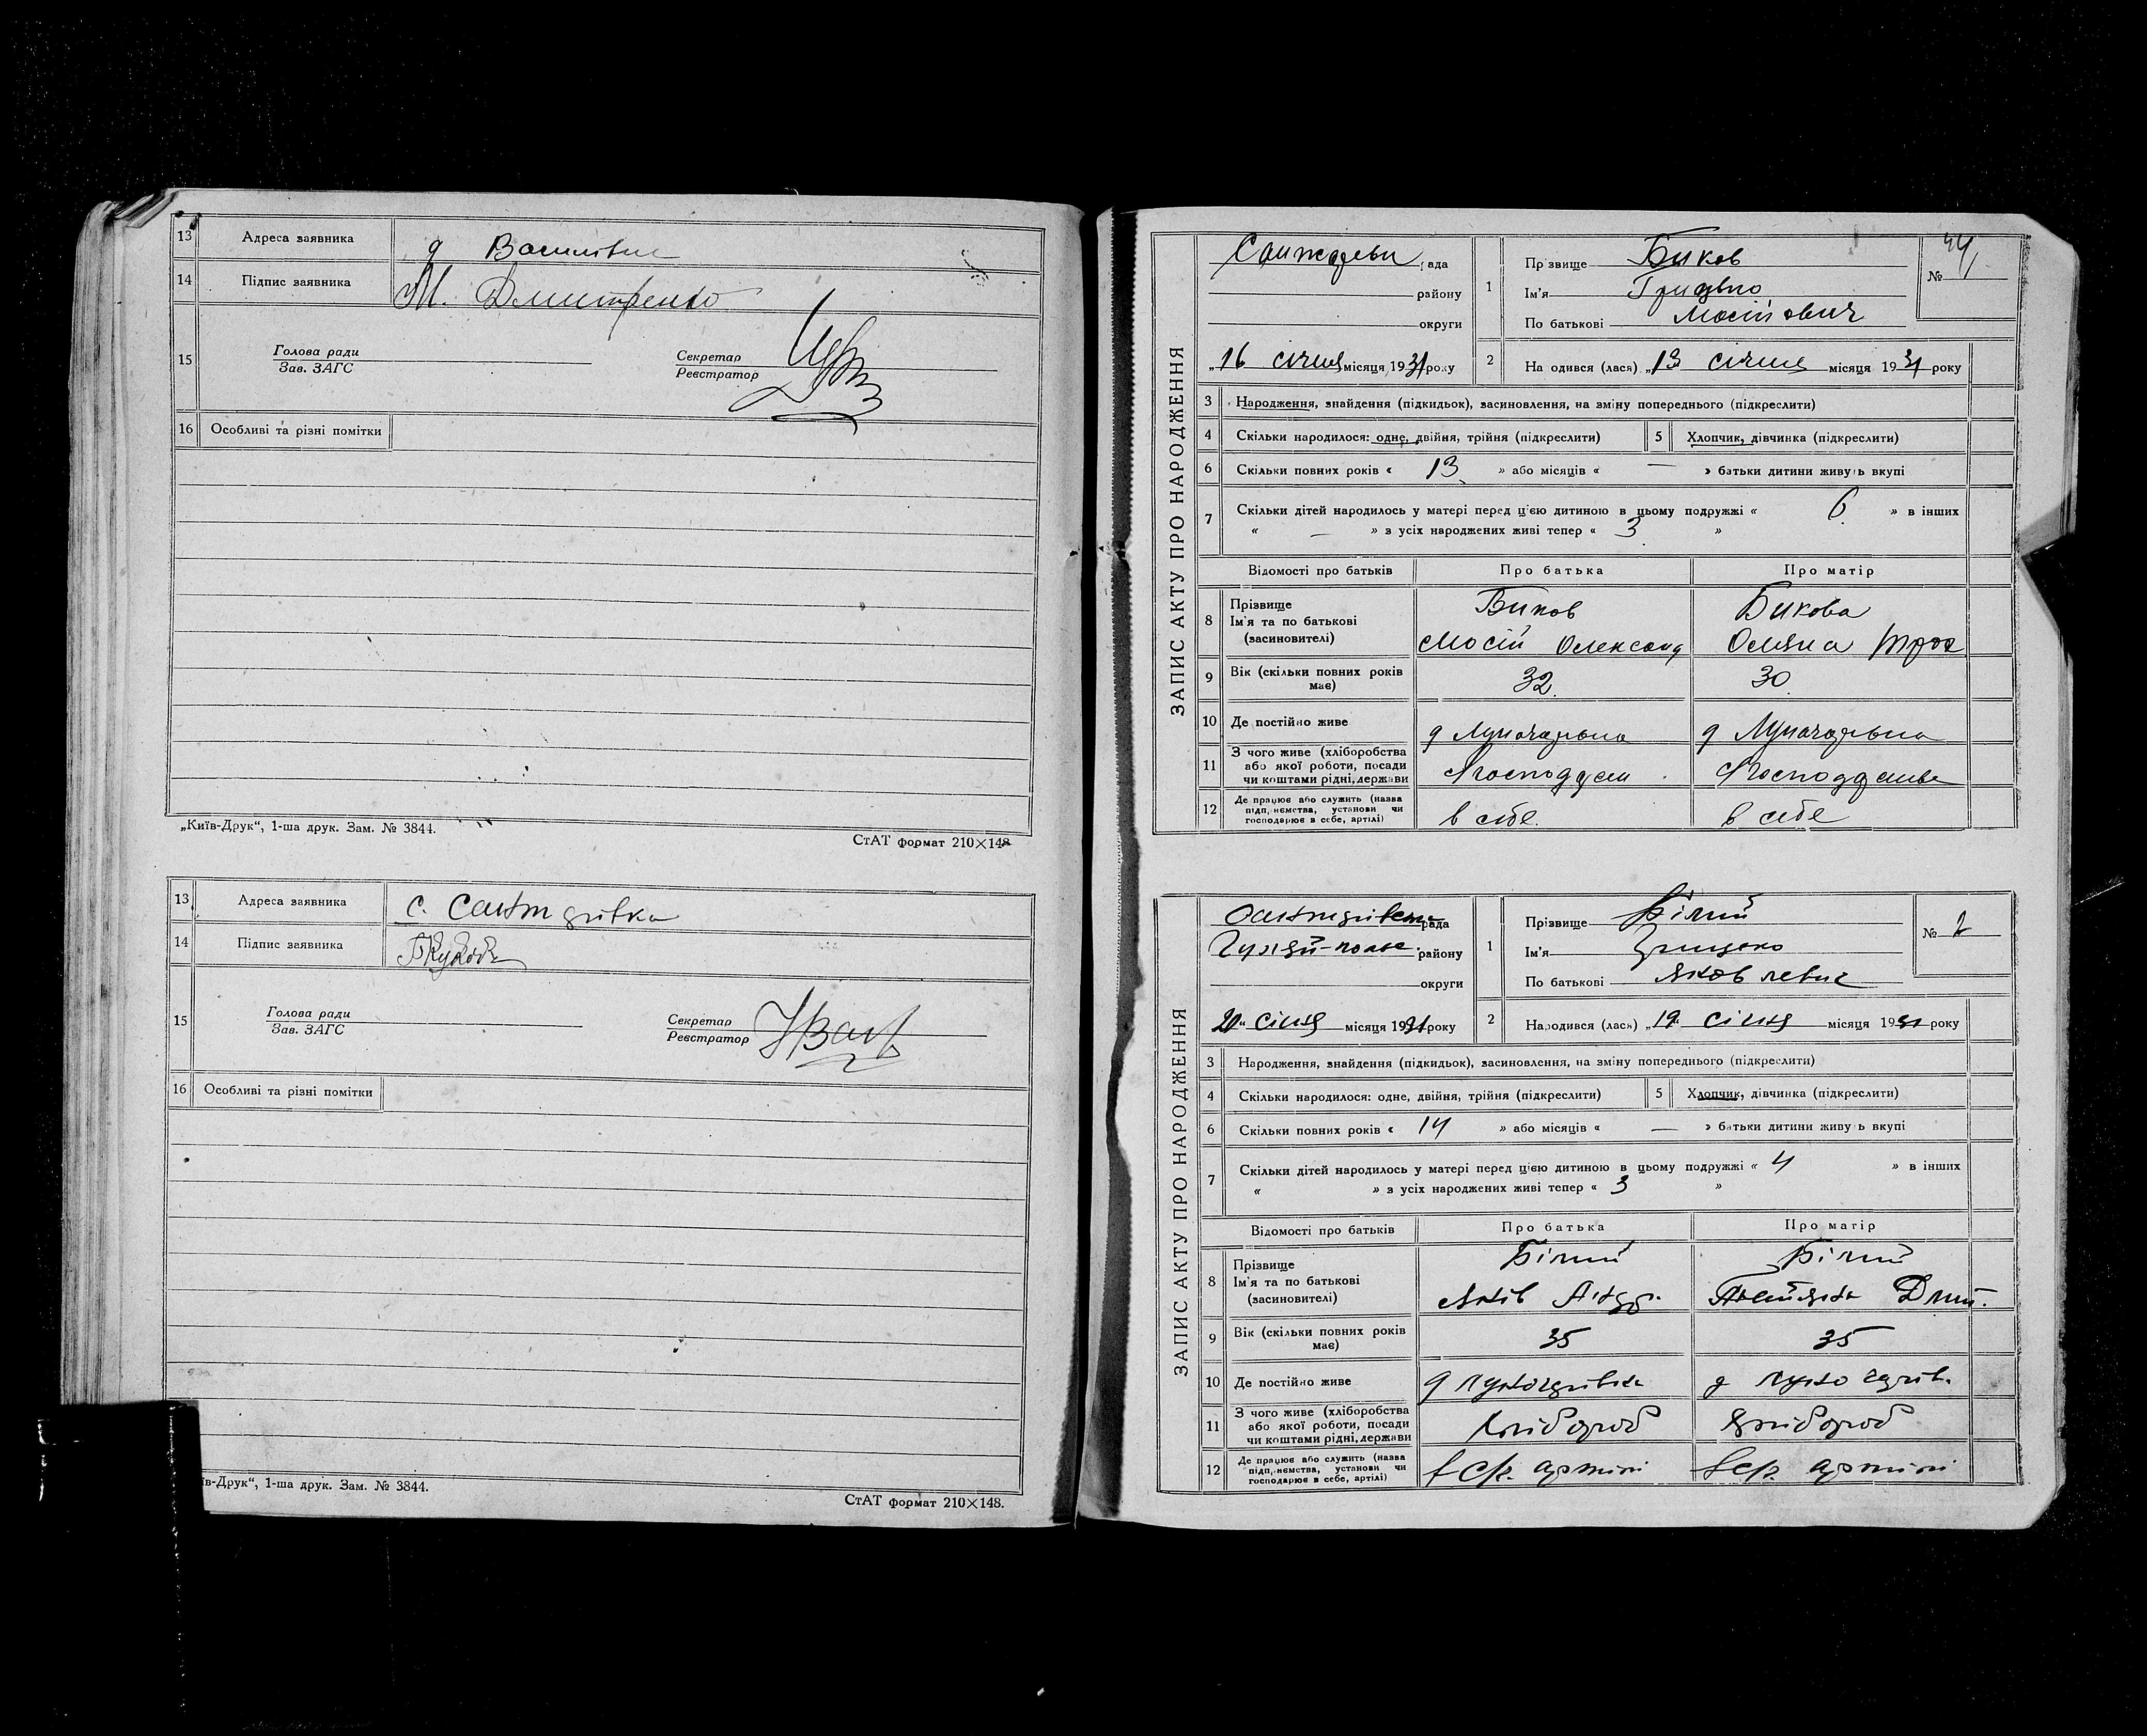 13 Адреса заявника д
14 Підпис заявника М. Дмитренко
15 Голова ради
Зав. ЗАГС
Секретар
Реєстратор
16 Особливі та різні помітки
„Київ-Друк“, 1-ша друк. Зам. № 3844.
СтАТ формат 210×148
13 Адреса заявника с.
14 Підпис заявника
15 Голова ради
Зав. ЗАГС
Секретар
Реєстратор
16 Особливі та різні помітки
ів-Друк“, 1-ша друк. Зам. № 3844.
СтАТ формат 210×148.
ЗАПИС АКТУ ПРО НАРОДЖЕННЯ
рада
району
округи
„16 січня місяця 1931 року
1 Прізвище Биков
Ім'я
По батькові Мосійович
№
2 Народився (лася) „13 січня місяця 1931 року
3 Народження, знайдення (підкидьок), засиновлення, на зміну попереднього (підкреслити)
4 Скільки народилося: одне, двійня, трійня (підкреслити)
5 Хлопчик, дівчинка (підкреслити)
6 Скільки повних років « 13 » або місяців « — » батьки дитини живуть вкупі
7 Скільки дітей народилось у матері перед цією дитиною в цьому подружжі « 6 » в інших
« — » з усіх народжених живі тепер « 3 »
Відомості про батьків Про батька Про матір
8 Прізвище Биков Бикова
Ім'я та по батькові
(засиновителі) Мосій Олександ
9 Вік (скільки повних років має) 32 30
10 Де постійно живе д д
11 З чого живе (хліборобства
або якої роботи, посади
чи коштами рідні, держави
12 Де працює або служить (назва
підприємства, установи чи
господарює в себе, артілі) в себе в себе
ЗАПИС АКТУ ПРО НАРОДЖЕННЯ
рада
Гуляй-поле району
округи
20 січня місяця 1931 року
1 Прізвище Білий
Ім'я Грицько
По батькові Яковлевич
№ 2
2 Народився (лася) „19 січня місяця 1931 року
3 Народження, знайдення (підкидьок), засиновлення, на зміну попереднього (підкреслити)
4 Скільки народилося: одне, двійня, трійня (підкреслити)
5 Хлопчик, дівчинка (підкреслити)
6 Скільки повних років « 14 » або місяців « — » батьки дитини живуть вкупі
7 Скільки дітей народилось у матері перед цією дитиною в цьому подружжі « 4 » в інших
« » з усіх народжених живі тепер « 3 »
Відомості про батьків Про батька Про матір
8 Прізвище Білий Білий
Ім'я та по батькові
(засиновителі) Яків Андр.
9 Вік (скільки повних років має) 35 35
10 Де постійно живе д д
11 З чого живе (хліборобства
або якої роботи, посади
чи коштами рідні, держави хлібороб хлібороб
12 Де працює або служить (назва
підприємства, установи чи
господарює в себе, артілі) в с/г. артілі в с/г. артілі